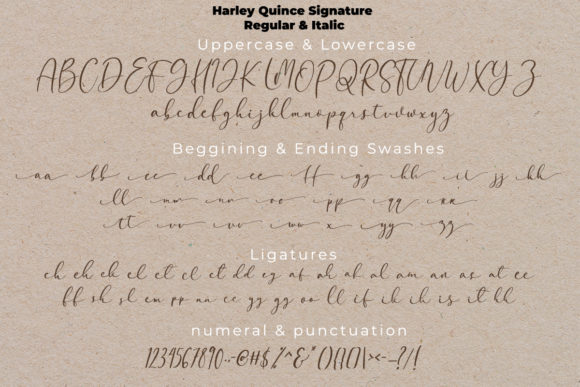 Harley Quince Signature
Regular & Italic
Uppercase & Lowercase
ABCDEFGHIJKLMNOPQRSTUVWXYZ
abcdefghijklmnopqrstuvwxyz
Beggining & Ending Swashes
aa bb cc dd ee ff gg hh ii jj kk
ll mm nn oo pp qq
tt vv ww x yy zz
Ligatures
ch ck el et cl ct dd eg af ah al am an as at ee
ff sh sl en pp nn cc gg yy oo ll if ih ik is it hh
numeral & punctuation
1234567890